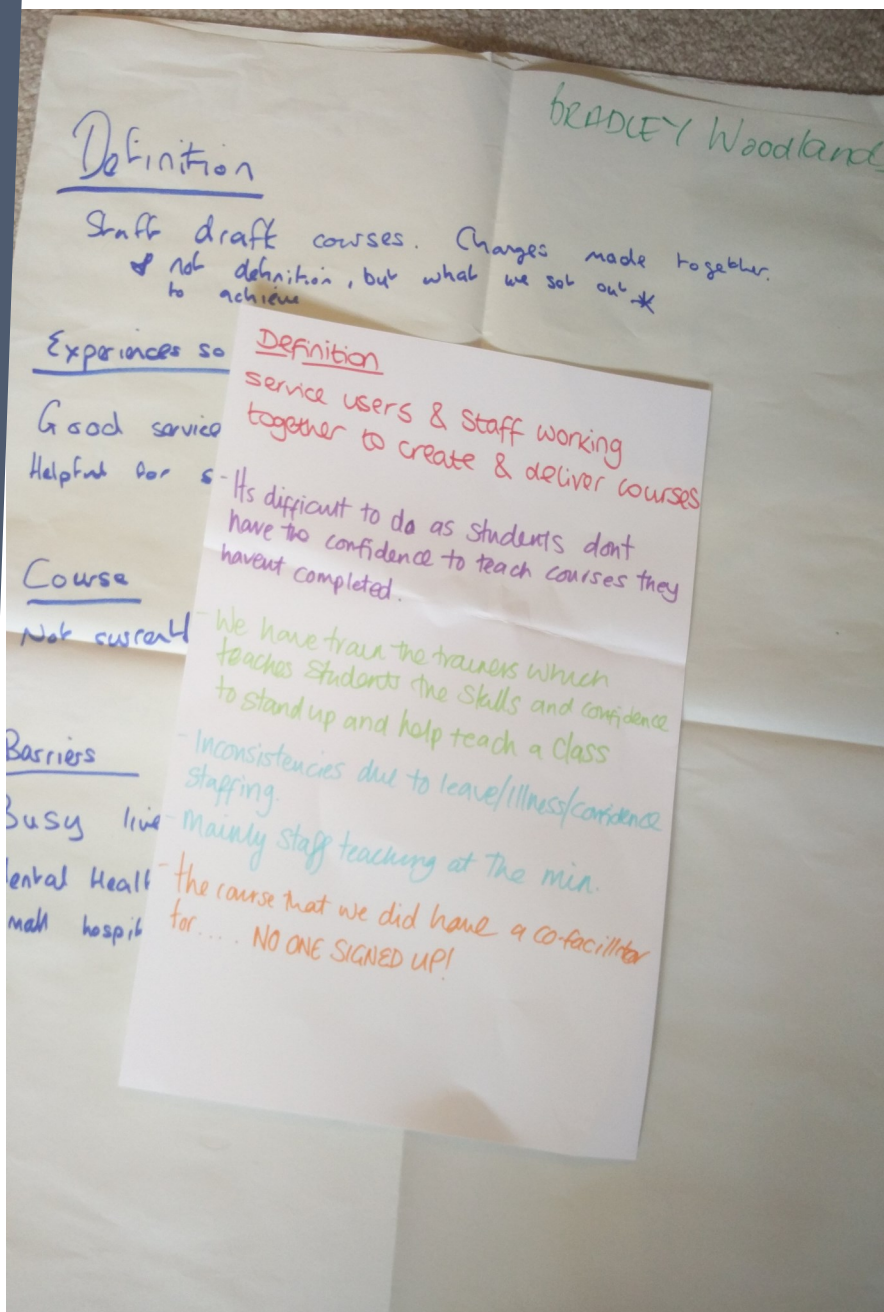 BRADLEY Woodland
Definition
Staff draft courses. Changes made together.
not definition, but what we set out *
to achieve
Experiences so
Good service
Helpful for s
Course
Not currentl
Barriers
Busy live
ental Healt
mall hospit
Definition
service users & staff working
together to create & deliver courses
- Its difficult to do as students dont
have the confidence to teach courses they
havent completed.
- We have train the trainers which
teaches students the skills and confidence
to stand up and help teach a class
- Inconsistencies due to leave/illness/confidence
staffing.
- Mainly staff teaching at the min.
- the course that we did have a co-facilitor
for.... NO ONE SIGNED UP!